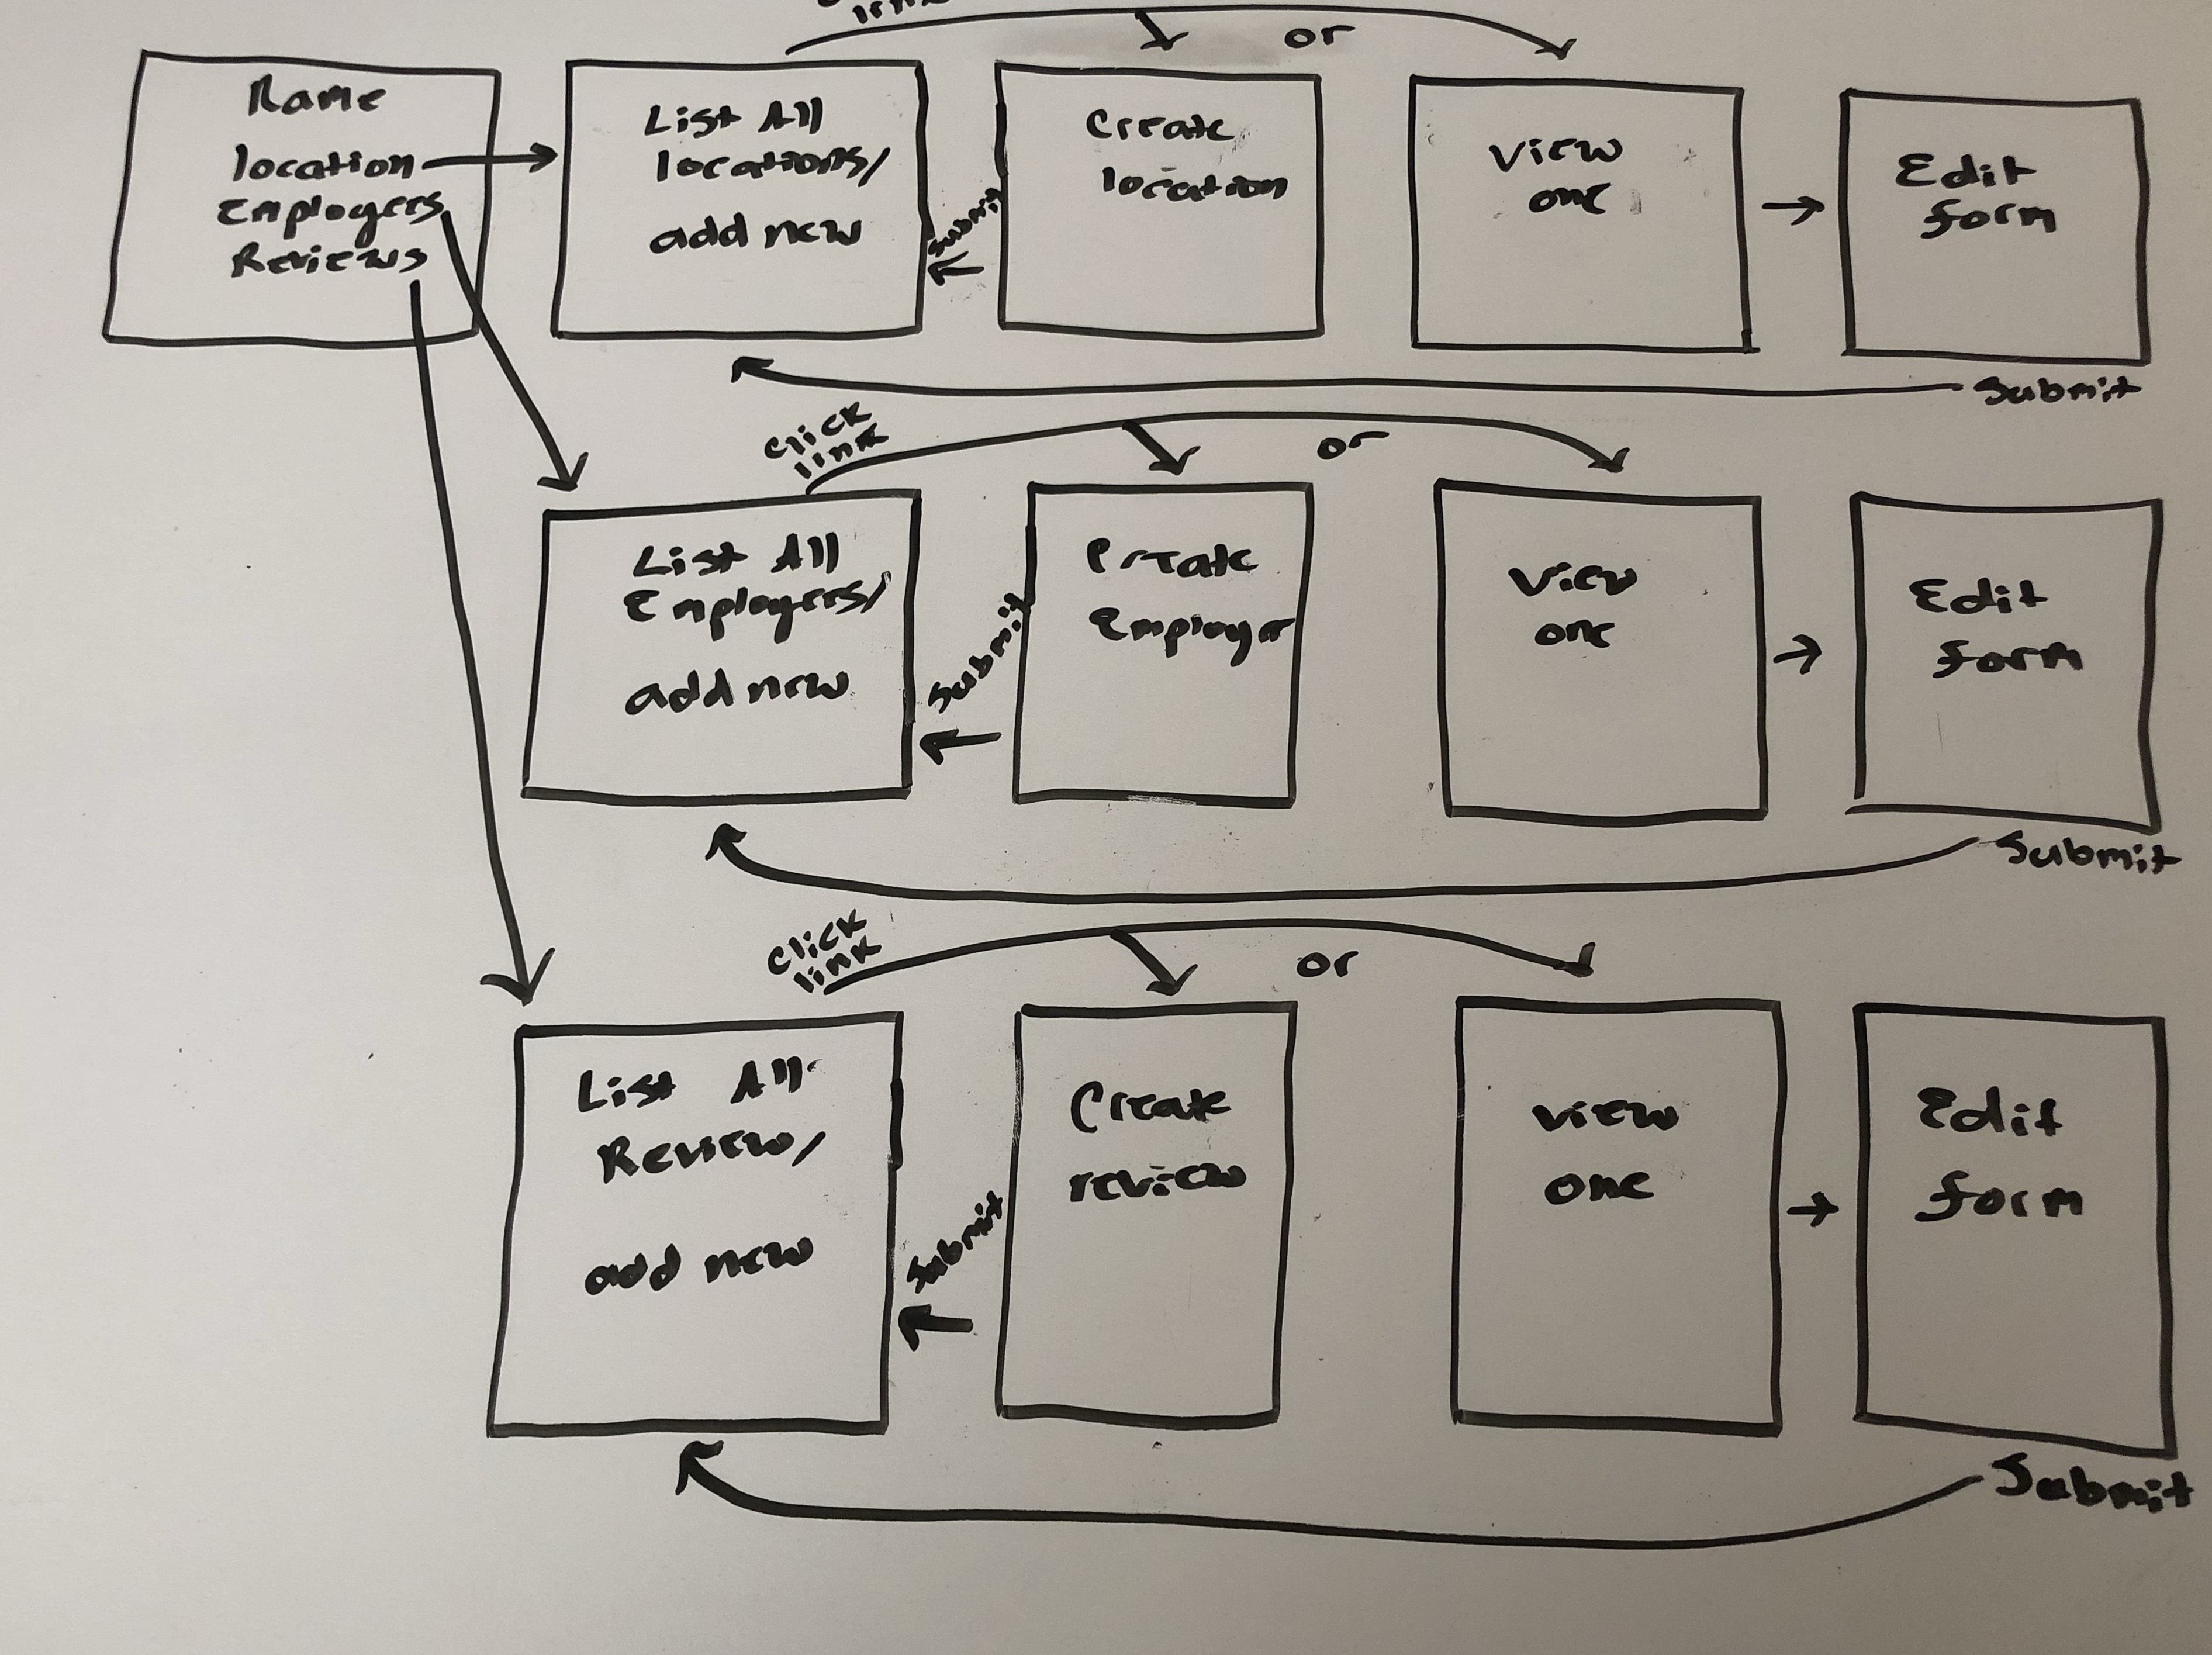 link
or
Name
location
Employers
Reviews
List All
locations/
add new
Submit
Create
location
View
one
Edit
form
Submit
click
link
or
List All
Employers/
add new
Submit
Create
Employer
View
one
Edit
form
Submit
click
link
or
List All
Review/
add new
Submit
Create
review
view
one
Edit
form
Submit